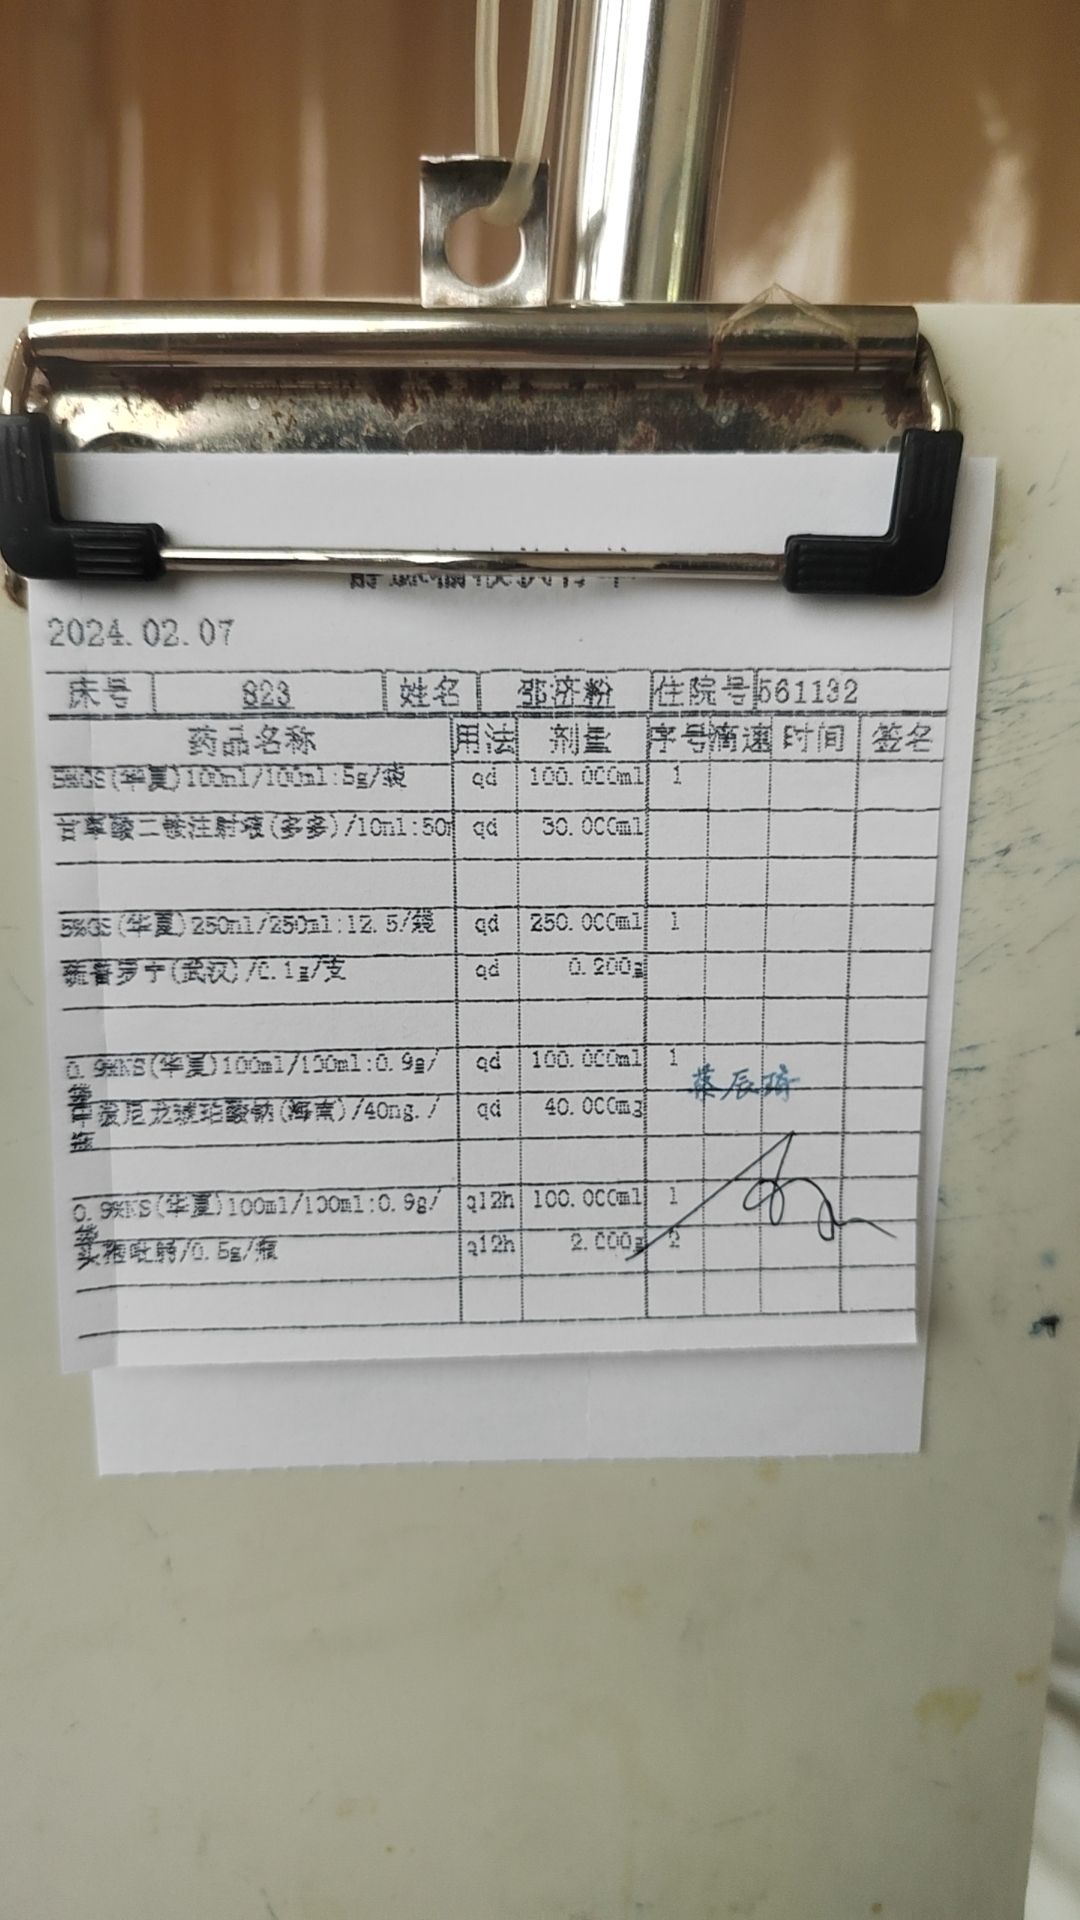 2024.02.07
床号 823 姓名 邹济粉 住院号 561132
药品名称 用法 剂量 序号 滴速 时间 签名
5%GS(华夏)100ml/100ml:5g/袋 qd 100.000ml 1
甘草酸二铵注射液(多多)/10ml:50m qd 30.000ml
5%GS(华夏)250ml/250ml:12.5/袋 qd 250.000ml 1
硫普罗宁(武汉)/0.1g/支 qd 0.200g
0.9%NS(华夏)100ml/100ml:0.9g/ qd 100.000ml 1
袋
甲泼尼龙琥珀酸钠(海南)/40mg./ qd 40.000mg
瓶
0.9%NS(华夏)100ml/100ml:0.9g/ q12h 100.000ml 1
袋
头孢吡肟/0.5g/瓶 q12h 2.000g 2